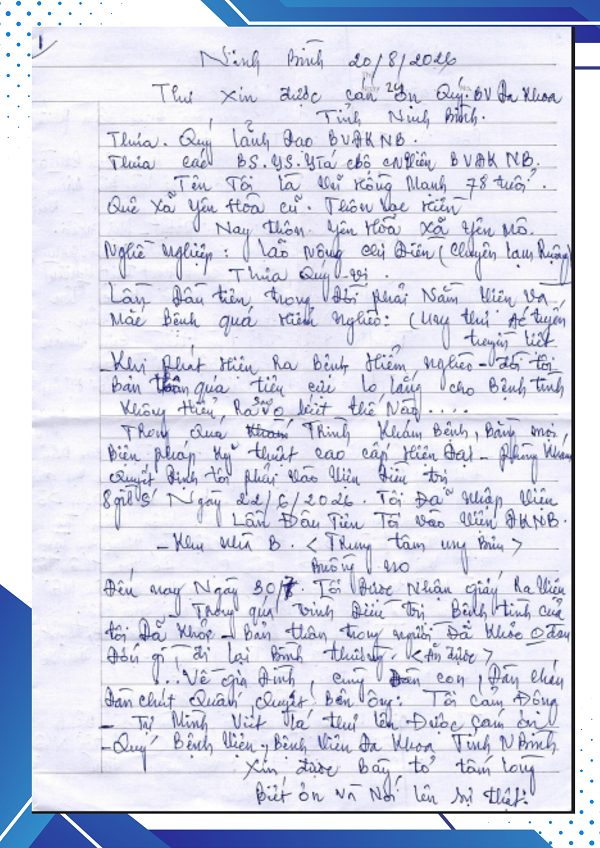 1
Ninh Bình 20/8/2026
Thư xin được cảm ơn Quý. BV Đa Khoa
Tỉnh Ninh Bình.
Thưa. Quý lãnh đạo BVĐKNB.
Thưa các BS. YS. Ytá cNViên BVĐK NB.
Tên Tôi là Vũ Hồng Mạnh 78 tuổi.
Quê xã Yên Hòa cũ. Thôn Lạc Hiền
Nay thôn Yên Hòa xã Yên Mô.
Nghề nghiệp: Lão Nông chi Điền (chuyên làm Ruộng)
Thưa Quý vị.
Lần Đầu tiên trong Đời phải Nằm Viện Va
Mắc Bệnh quá Hiểm Nghèo: (Ung thư tuyến
tuyền liệt
- Khi phát Hiện Ra Bệnh Hiểm nghèo - đối tôi
Bản thân quá tiêu cực lo lắng cho Bệnh tình
Không Hiểu, Ra Sao thế Nào....
Trong Quá Trình Khám Bệnh, Bằng mọi
Biện pháp Kỹ thuật cao cấp Hiện Đại - phòng Khám
Quyết Định tôi phải vào Viện Điều trị
Ngày 22/6/2026. Tôi Đã Nhập Viện
Lần Đầu Tiên Tôi vào Viện ĐKNB.
- Khu Nhà B. <Trung tâm ung Bứu>
Buồng
Đến nay Ngày 30/7. Tôi Được Nhận giấy Ra Viện
- Trong quá trình Điều Trị Bệnh tình của
tôi Đã Khỏe - Bản thân trong người Đã Khỏe 0 đau
Đớn gì, đi lại Bình thường. <Ăn được>
... Về gia Đình, cùng con, Đàn cháu
Đàn chút Quân Quyết Bên Ông: Tôi cảm Động
- Tự Mình Viết lá thư lên Được cảm ơn
- Quý Bệnh Viện, Bệnh Viện Đa Khoa Tỉnh NBình
Xin được Bày tỏ tấm lòng
Biết ơn và Nói lên Sự thật!